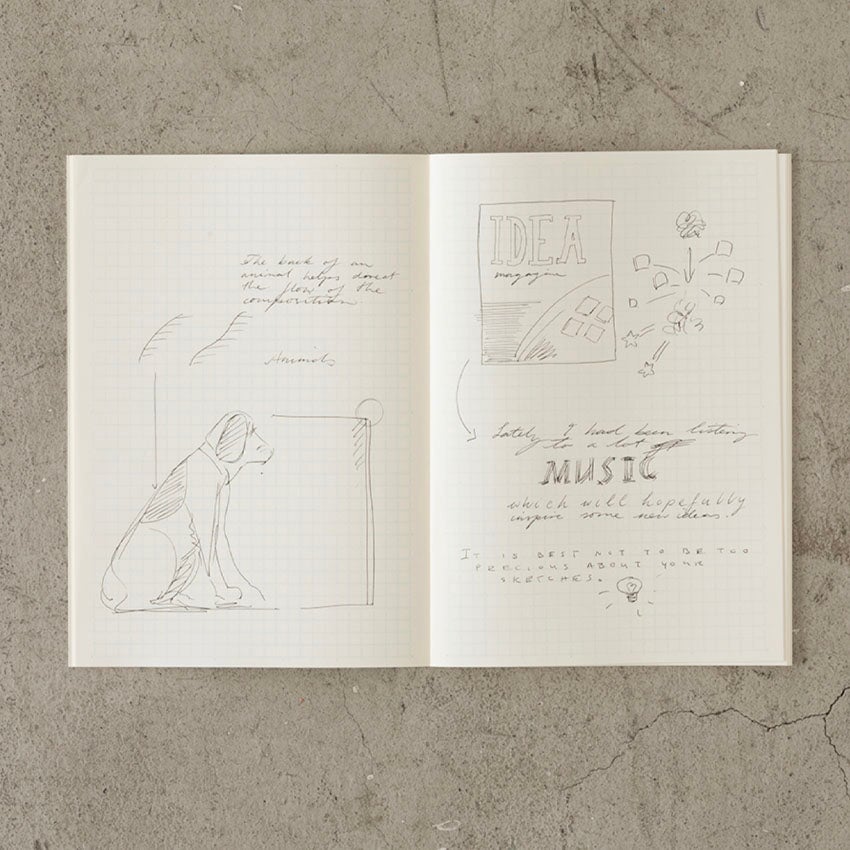 The back of an
animal helps direct
the flow of the
composition.
Animals
IDEA
magazine
Lately I had been listing
to a lot of
MUSIC
which will hopefully
inspire some new ideas.
IT IS BEST NOT TO BE TOO
PRECIOUS ABOUT YOUR
SKETCHES.